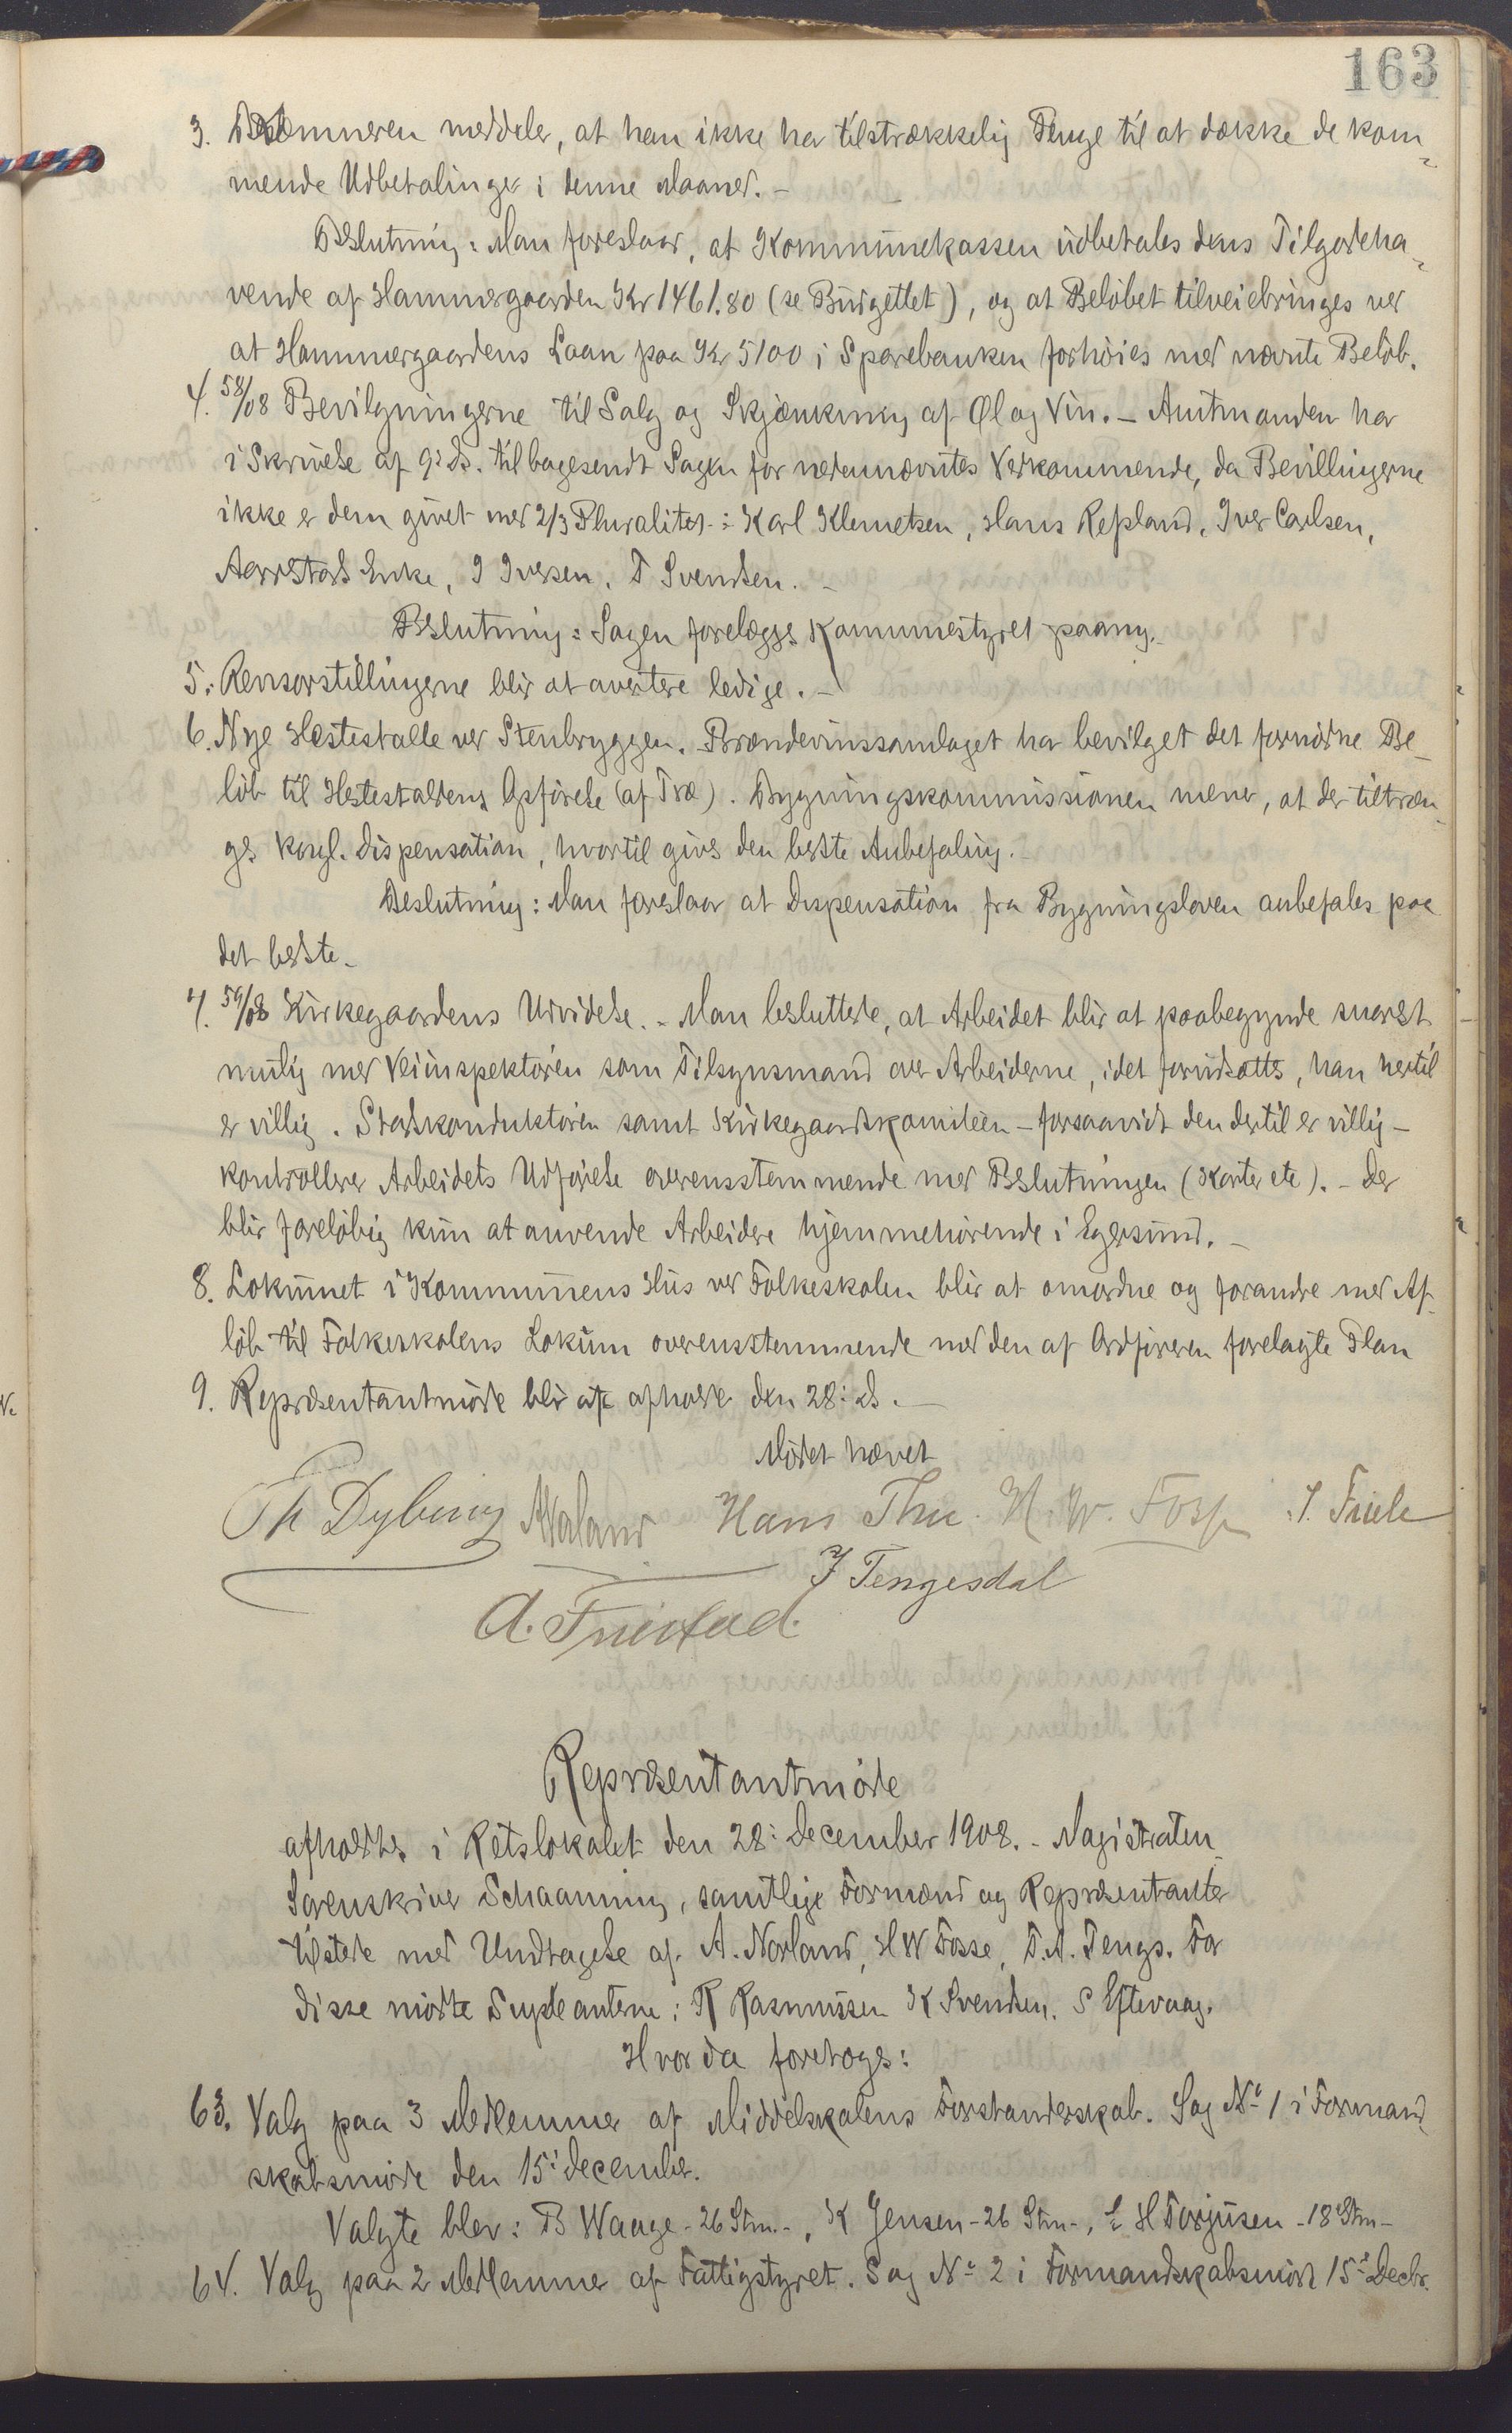 163
3. Kæmneren meddeler, at han ikke har tilstrækkelig Penge til at dække de kom-
mende Udbetalinger i denne Maaned. -
Beslutning: Man foreslaar, at Kommunekassen udbetales dens Tilgodeha-
vende af Hammergaarden Kr 1461.80 (se Budgettet), og at Beløbet tilveiebringes ved
at Hammergaardens Laan paa Kr 5100 i Sparebanken forhöies med nævnte Belöb.
4. 58/08 Bevilgningerne til Salg og Skjænkning af Øl og Vin. - Amtmanden har
i Skrivelse af 9: ds. tilbagesendt Sagen for nedennævntes Vedkommende, da Bevillingerne
ikke er dem givet med 2/3 Pluralitet: Karl Klemetsen, Hans Refsland, Iver Carlsen,
Aarrestads Enke, I Iversen, T Svendsen. -
Beslutning: Sagen forelægges Kommunestyret paany. -
5. Rensorstillingerne blir at avertere ledige. -
6. Nye Hestestalle ved Stenbryggen. Brændevinssamlaget har bevilget det fornødne Be-
löb til Hestestaldens Opförelse (af Træ). Bygningskommissionen mener, at der tiltræn-
ges kongl. Dispensation, hvortil gives den bedste Anbefaling. -
Beslutning: Man foreslaar at Dispensation fra Bygningsloven anbefales paa
det bedste. -
7. 59/08 Kirkegaardens Udvidelse. - Man besluttede, at Arbeidet blir at paabegynde snarest
mulig med Veiinspektören som Tilsynsmand over Arbeiderne, idet forudsattes, han hertil
er villig. Stadskonduktören samt Kirkegaardskomiteen - forsaavidt den dertil er villig -
kontrollerer Arbeidets Udförelse overensstemmende med Beslutningen (Karter etc). - Der
blir foreløbig kun at anvende Arbeidere hjemmehörende i Egersund. -
8. Lokumet i Kommunens Hus ved Folkeskolen blir at omordne og forandre med Af-
löb til Folkeskolens Lokum overensstemmende med den af Ordföreren forelagte Plan
9. Repræsentantmöde blir at afholde den 28: ds. -
Mödet hævet
Th Dybing Aaland Hans Thu. H. W. Fosse J. Friele
J Tengesdal
A. Fuistad.
Repræsentantmöde
afholdtes i Retslokalet den 28: December 1908. - Magistraten
Sorenskriver Schaanning, samtlige Formænd og Repræsentanter
tilstede med Undtagelse af A. Norland, H W Fosse, T. A. Tengs. For
disse mödte Suppleanterne: R Rasmussen K Svendsen. S Eftevaag.
Hvor da foretoges:
63. Valg paa 3 Medlemmer af Middelskolens Forstanderskab. Sag No 1 i Formand-
skabsmöde den 15: December.
Valgte blev: B Waage - 26 Stm. -, K Jensen - 26 Stm -, E H Torjusen - 18 Stm -
64. Valg paa 2 Medlemmer af Fattigstyret. Sag No 2 i Formandskabsmöde 15: Decbr.